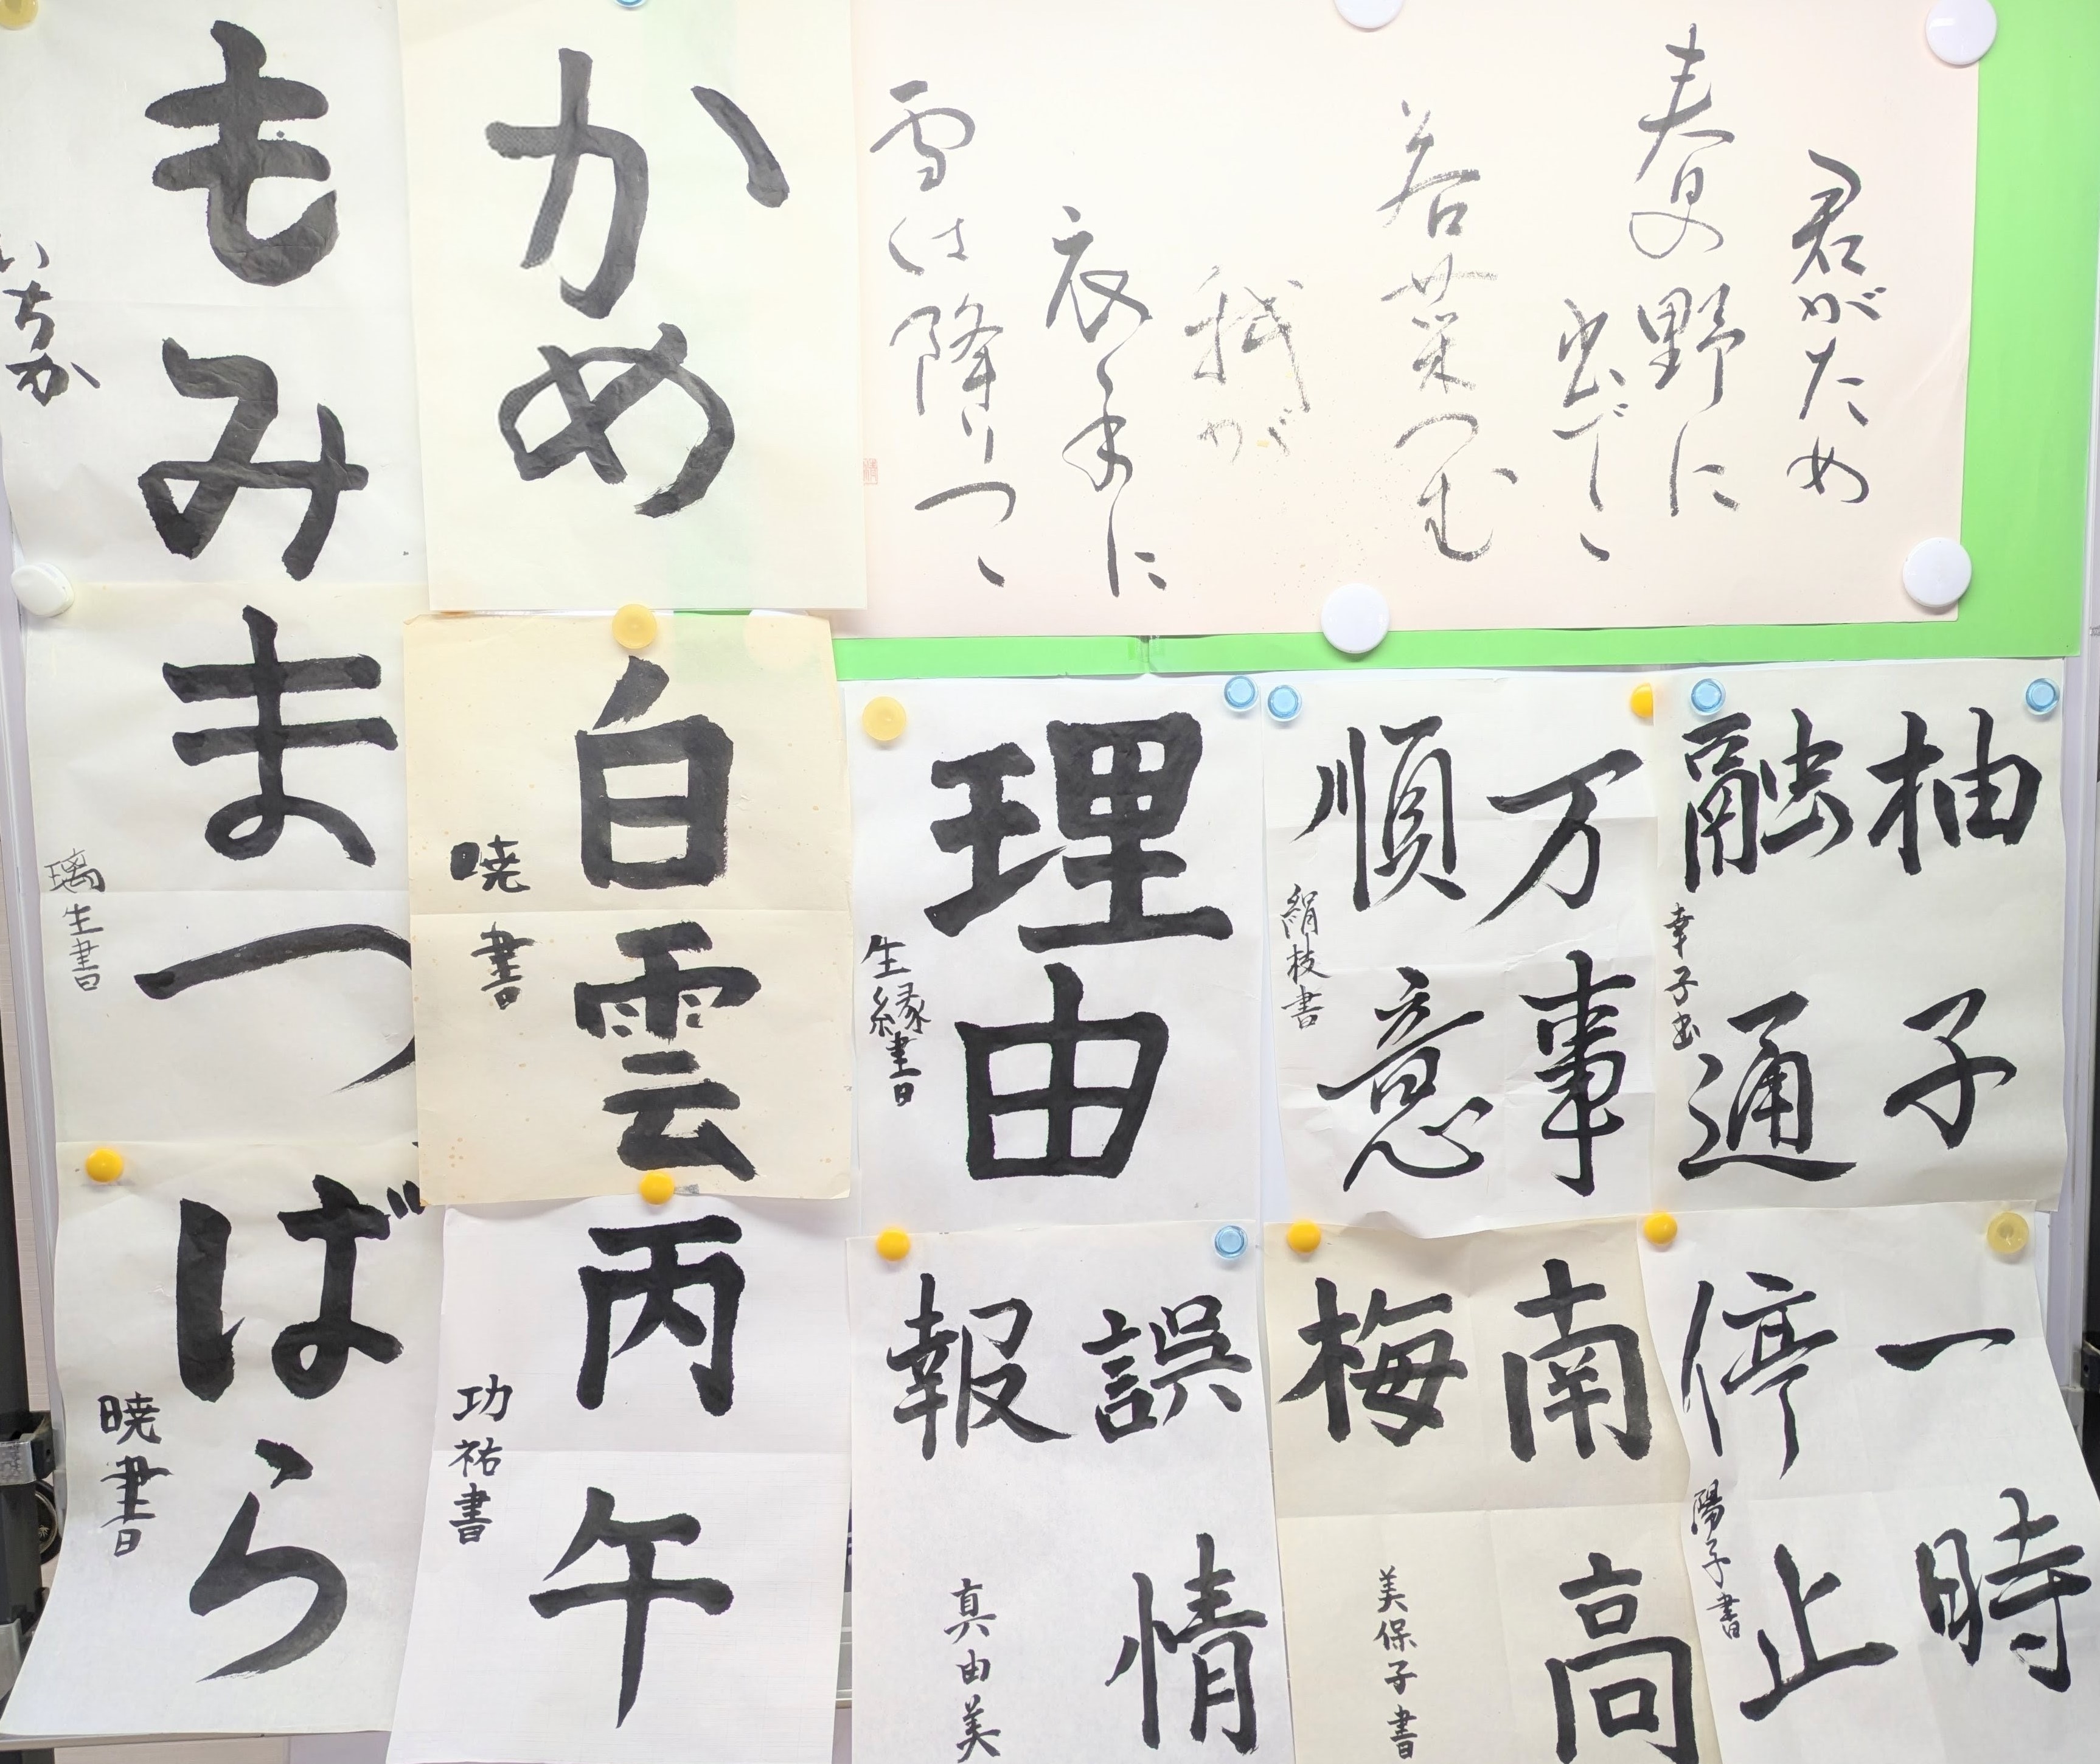 君がため
春の野に
出でゝ
若菜つむ
我が
衣手に
雪は降りつゝ
かめ
もみ
いちか
柚子
融通
幸子書
万事
順意
絹枝書
理由
生縁書
白雲
暁書
まつ
璃生書
一時
停止
陽子書
南高
梅
美保子書
誤情
報
真由美
丙午
功祐書
ばら
暁書